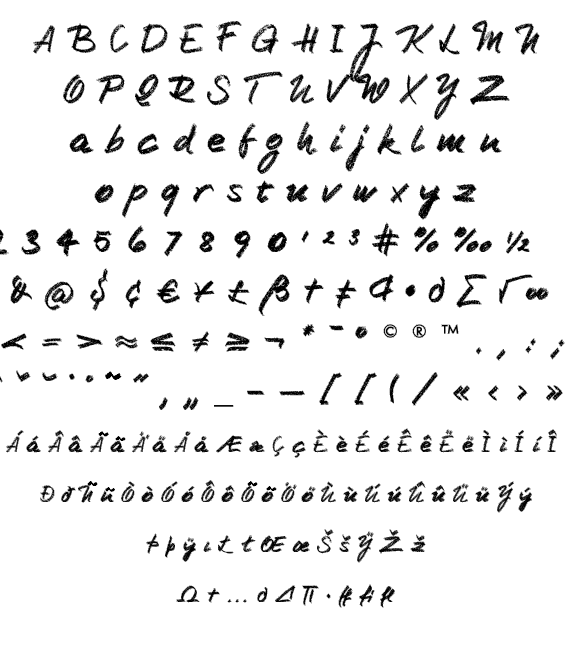 A B C D E F G H I J K L M N
O P Q R S T U V W X Y Z
a b c d e f g h i j k l m n
o p q r s t u v w x y z
2 3 4 5 6 7 8 9 0 ' ² ³ # % ‰ ½
& @ $ ¢ € ¥ £ β † ‡ ¶ • ∂ ∑ √ ∞
< = > ≈ ≤ ≠ ≥ ¬ * ¯ ° © ® ™ . , : ;
` ˘ ˇ ˙ ˚ ˜ ˝ ‚ „ _ – — [ [ ( / « ‹ › »
Á á Â â Ã ã Ä ä Å å Æ æ Ç ç È è É é Ê ê Ë ë Ì ì Í í Î
Ð ð Ñ ñ Ò ò Ó ó Ô ô Õ õ Ö ö Ù ù Ú ú Û û Ü ü Ý ý
Þ þ ÿ ı Ł ł Œ œ Š š Ÿ Ž ž
Ω † … ∂ ∆ ∏ · ff fi fl